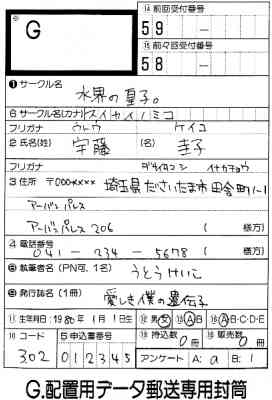 ※
G
⑭前回受付番号
59 −
⑮前々回受付番号
58 −
❶サークル名
水界の皇子。
6 サークル名(カナ) スイカイノミコ
フリガナ ウトウ ケイコ
2 氏名(姓) 宇藤 (名) 圭子
フリガナ ダサイタマシ イナカチョウ
3 住所 〒000-×××× 埼玉県ださいたま市田舎町1-1
アーバンパレス
アーバンパレス206 ( 様方)
4 電話番号 ( 様方)
041 − 234 − 5678
⑧執筆者名(PN可、1名) うとうけいこ
⑨発行誌名(1冊) 愛しき僕の遺伝子
⑪生年月日:1980年1月1日生 ⑫男・女 ⑬A・B ⑯A・B・C・D・E
10 コード 5 申込書番号 ⑱持込数 ⑲販売数
0冊 0冊
302 012345 アンケート A: a B: 1
G.配置用データ郵送専用封筒